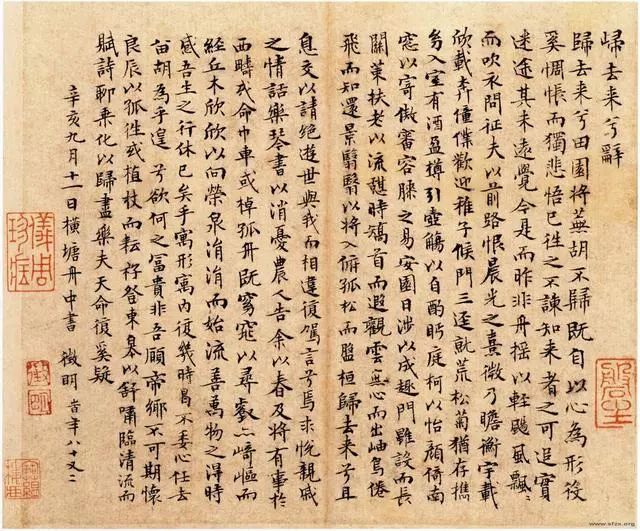 歸去来兮辭
歸去来兮田園將蕪胡不歸既自以心為形役
奚惆悵而獨悲悟已往之不諫知来者之可追實
迷途其未遠覺今是而昨非舟摇以輕颺風飄〻
而吹衣問征夫以前路恨晨光之熹微乃瞻衡宇載
欣載奔僮僕歡迎稚子候門三逕就荒松菊猶存攜
幼入室有酒盈樽引壺觴以自酌眄庭柯以怡顔倚南
窓以寄傲審容膝之易安園日涉以成趣門雖設而長
關策扶老以流憩時矯首而遐觀雲無心而出岫鳥倦
飛而知還景翳翳以將入撫孤松而盤桓歸去来兮且
息交以請絶遊世與我而相違復駕言兮焉求悅親戚
之情話樂琴書以消憂農人告余以春及將有事於
西疇或命巾車或棹孤舟既窈窕以尋壑亦崎嶇而
經丘木欣欣以向榮泉涓涓而始流善萬物之得時
感吾生之行休已矣乎寓形寓内復幾時曷不委心任去
留胡為乎遑兮欲何之富貴非吾願帝鄉不可期懷
良辰以孤往或植杖而耘耔登東皋以舒嘯臨清流而
賦詩聊乗化以歸盡樂夫天命復奚疑
辛亥九月十一日橫塘舟中書 徵明 時年八十又二
徵明